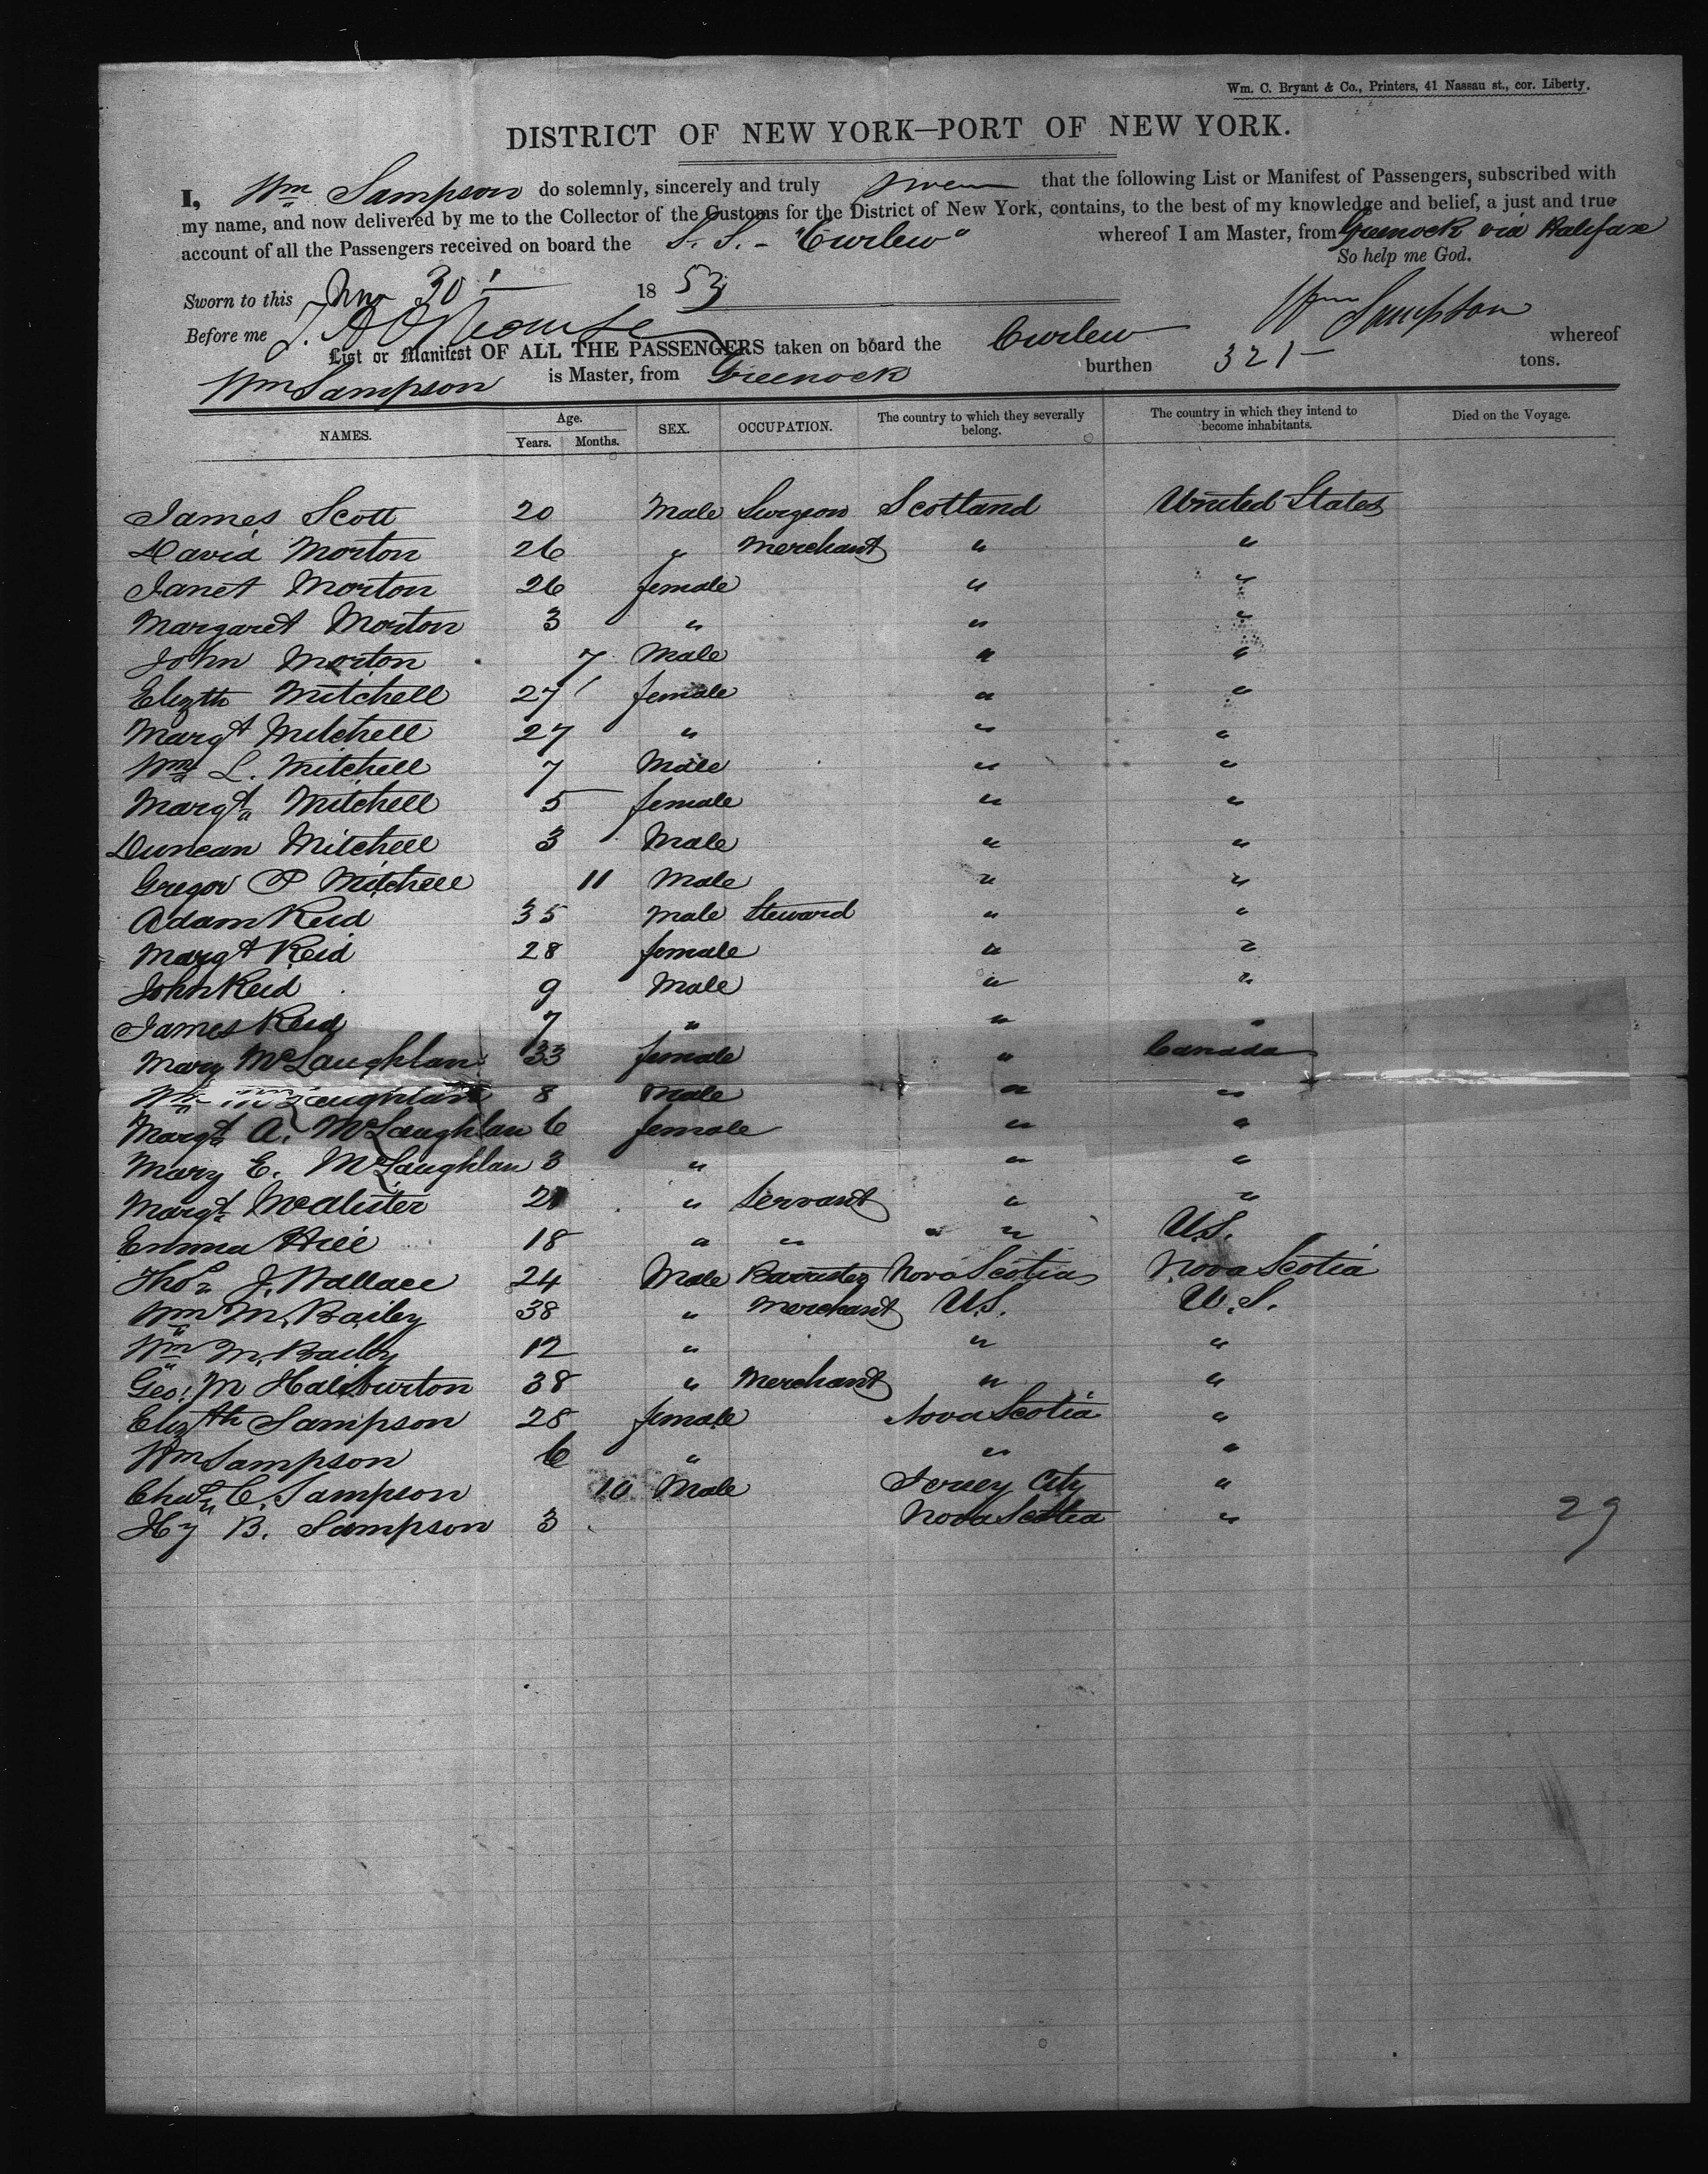 Wm. C. Bryant & Co., Printers, 41 Nassau st., cor. Liberty.
DISTRICT OF NEW YORK—PORT OF NEW YORK.
I, Wm Sampson do solemnly, sincerely and truly swear that the following List or Manifest of Passengers, subscribed with
my name, and now delivered by me to the Collector of the Customs for the District of New York, contains, to the best of my knowledge and belief, a just and true
account of all the Passengers received on board the S. S. - "Curlew" whereof I am Master, from Greenock via Halifax
So help me God.
Sworn to this 30 1853
Wm Sampson
Before me
List or Manifest OF ALL THE PASSENGERS taken on board the Curlew whereof
Wm Sampson is Master, from Greenock burthen 321 - tons.
NAMES. Age. Years. Months. SEX. OCCUPATION. The country to which they severally belong. The country in which they intend to become inhabitants. Died on the Voyage.
James Scott 20 Male Surgeon Scotland United States
David Morton 26 " Merchant " "
Janet Morton 26 female " "
Margaret Morton 3 " " "
John Morton 7 Male " "
Elizth Mitchell 27 female " "
Margt Mitchell 27 " " "
Wm L. Mitchell 7 Male " "
Margt Mitchell 5 female " "
Duncan Mitchell 3 Male " "
Gregor P Mitchell 11 Male " "
Adam Reid 35 Male Steward " "
Margt Reid 28 female " "
John Reid 9 Male " "
James Reid 7 " " "
Mary McLaughlan 33 female " Canada
Wm McLaughlan 8 Male " "
Margt A. McLaughlan 6 female " "
Mary E. McLaughlan 3 " " "
Margt McAlister 21 " Servant " "
Emma Hill 18 " " " " U.S.
Thos J. Wallace 24 Male Barrister Nova Scotia Nova Scotia
Wm M. Bailey 38 " Merchant U.S. U.S.
Wm M. Bailey 12 " " "
Geo. M Haliburton 38 " Merchant " "
Elizth Sampson 28 female Nova Scotia "
Wm Sampson 6 " " "
Chas C. Sampson 10 Male Jersey City "
Hy B. Sampson 3 Nova Scotia "
29